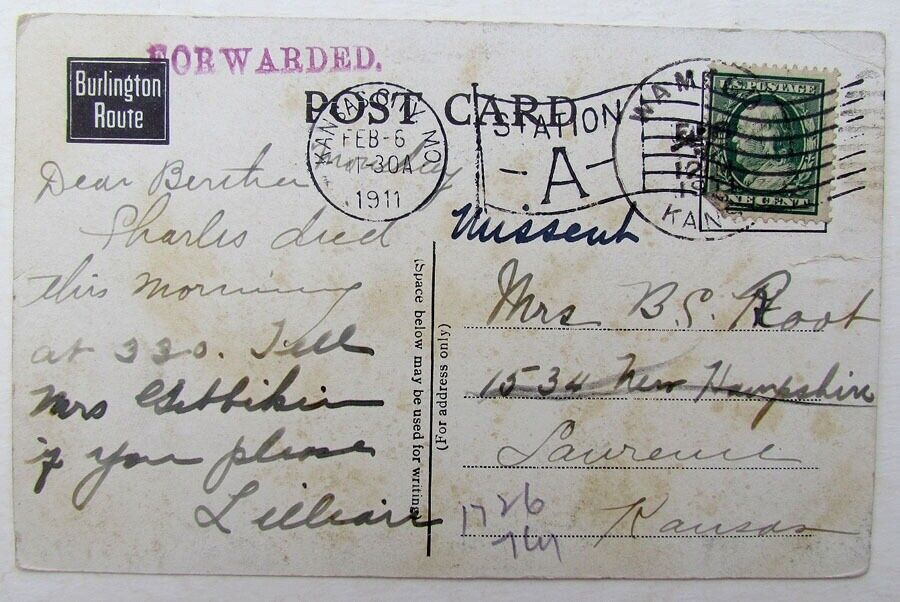 FORWARDED.
Burlington
Route
POST CARD
KANSAS CITY MO
FEB-6
11-30A
1911
STATION
A
WAMEGO
KANS
U.S. POSTAGE
ONE CENT
Missent
Dear Bertha
Charles died
this morning
at 330. Tell
Mrs
if you please
Lillian
(Space below may be used for writing)
(For address only)
Mrs B.S. Root
1534 New Hampshire
Lawrence
Kansas
1726